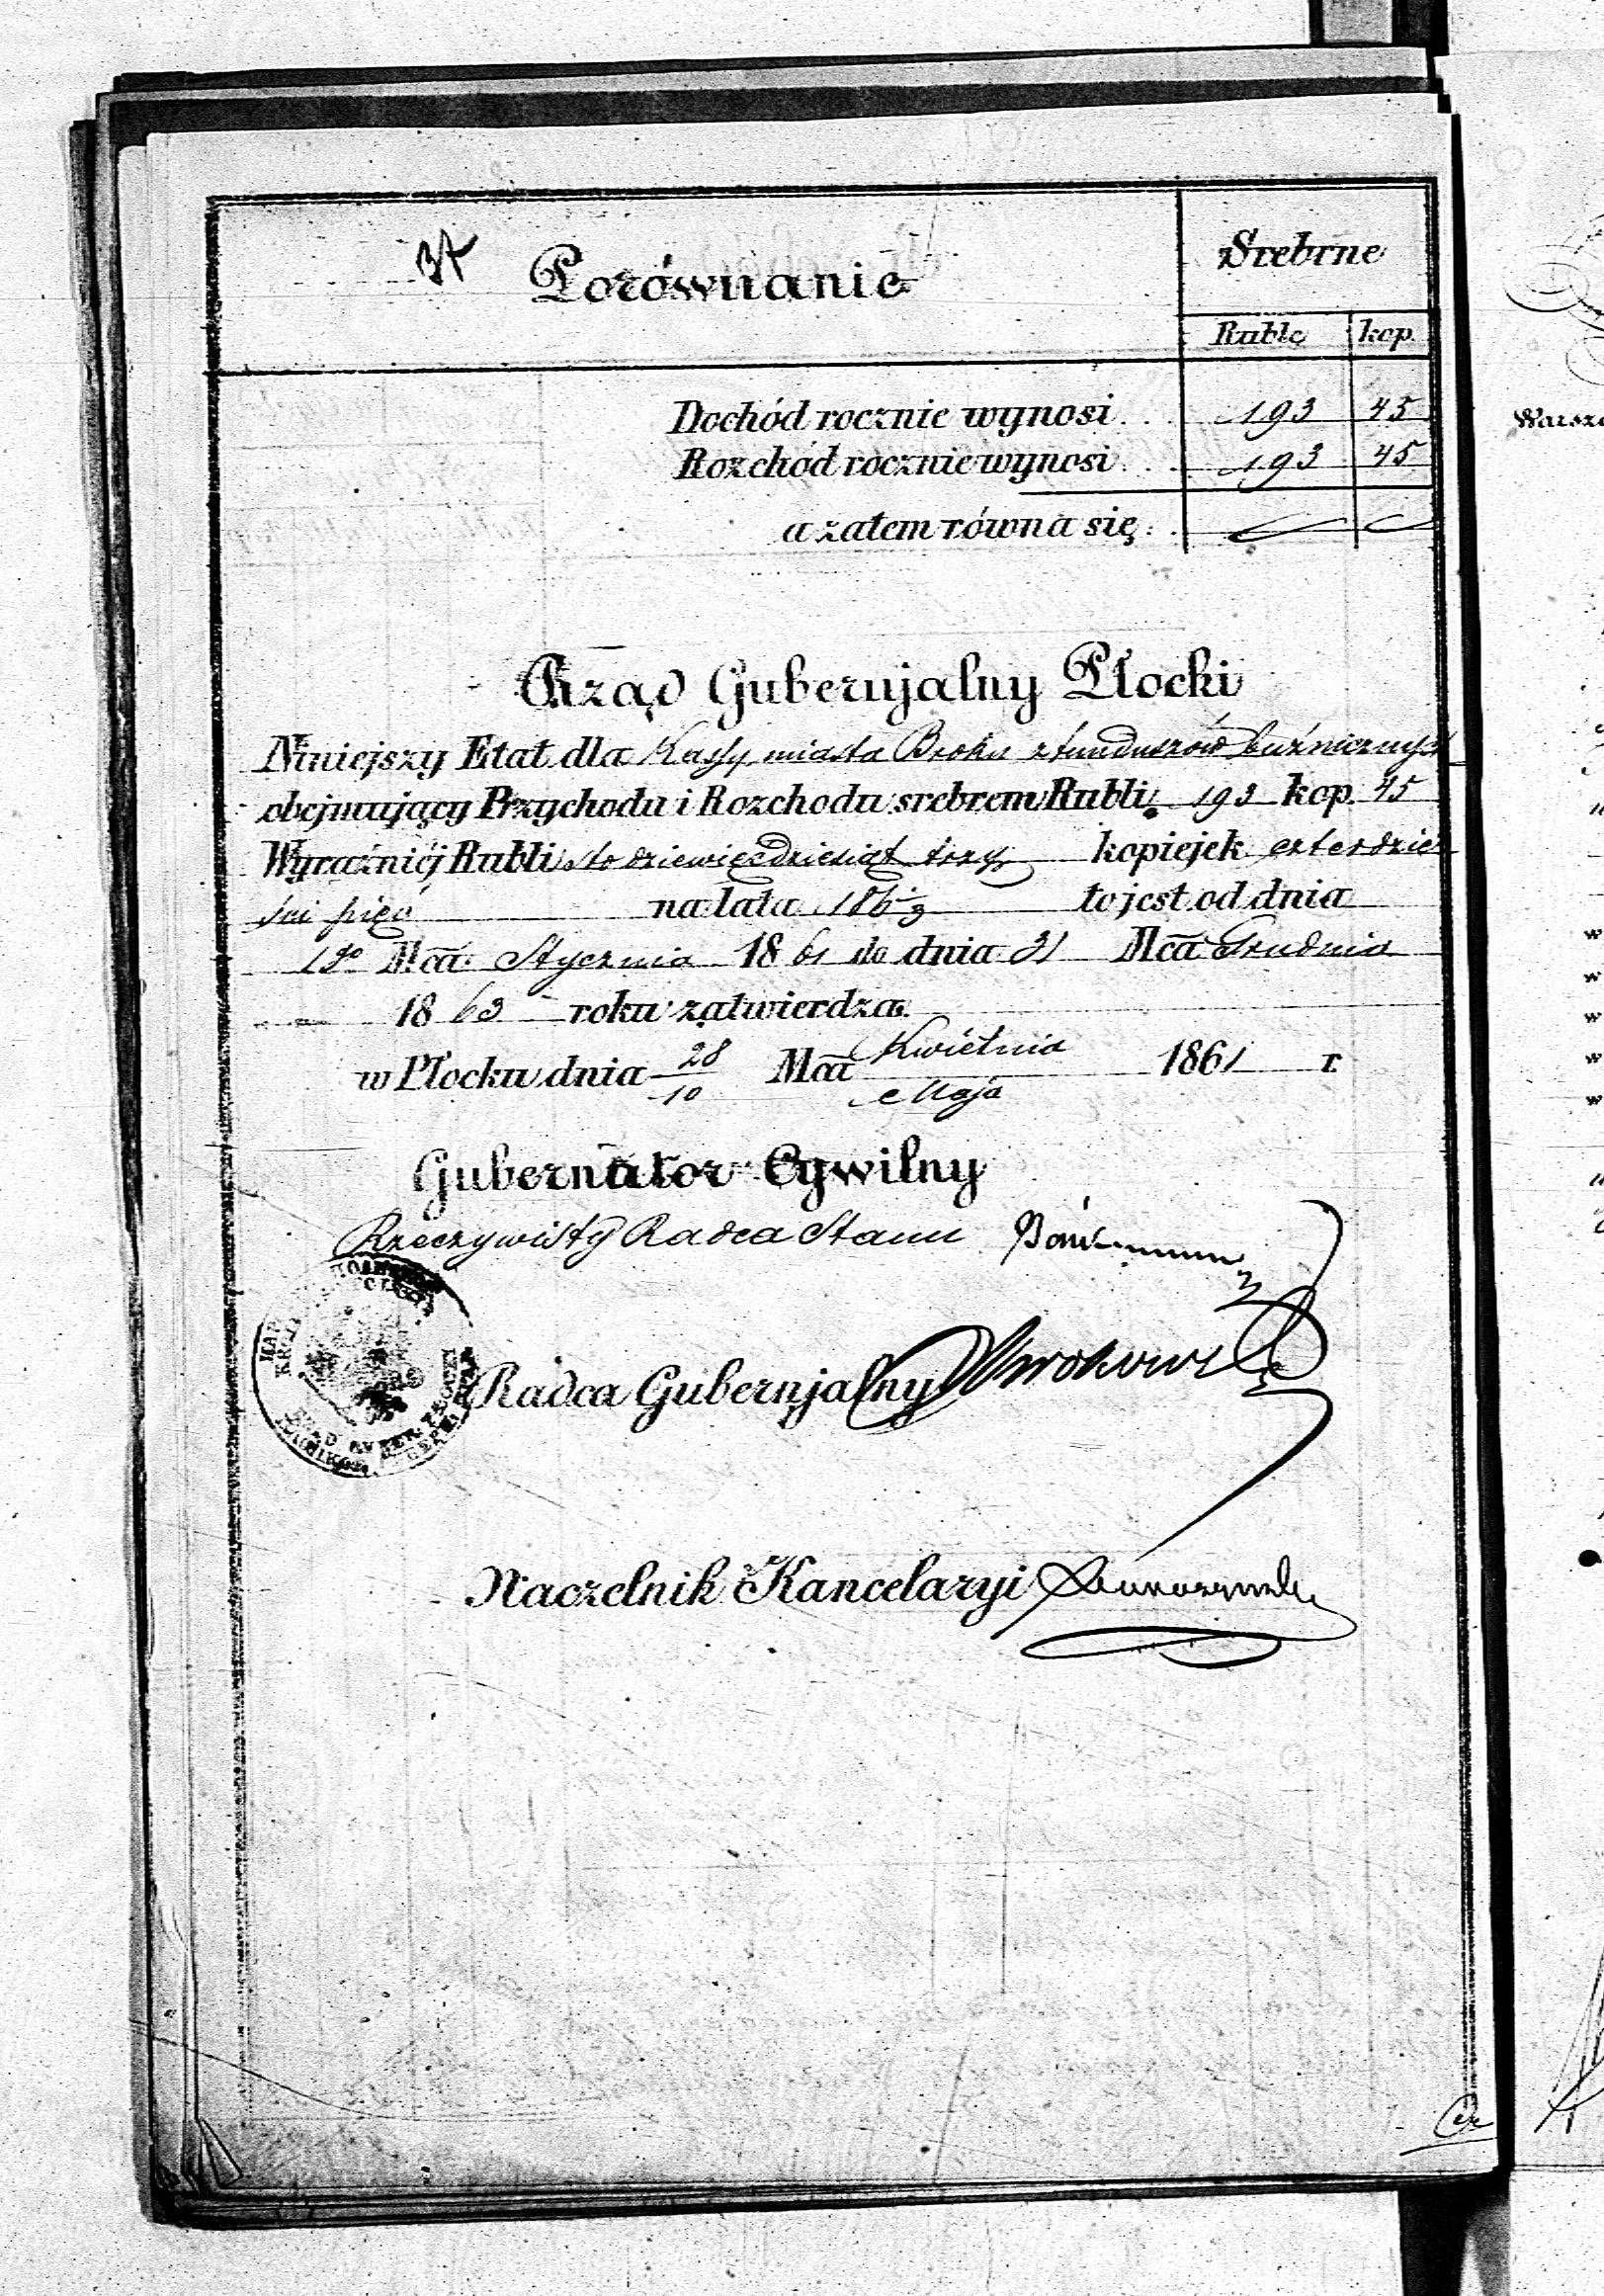 Porównanie
Srebrne
Ruble kop.
Dochód rocznie wynosi . . 193 45
Rozchód rocznie wynosi . . 193 45
a zatem równa się . .
Rząd Gubernjalny Płocki
Niniejszy Etat dla Kassy miasta Broku z funduszów buźnicznych
obejmujący Przychodu i Rozchodu srebrem Rubli 193 kop. 45
Wyraźniej Rubli sto dziewięćdziesiąt trzy kopiejek czterdzie
ści pięć na lata 186 1/3 to jest od dnia
1go Mca Stycznia 1861 do dnia 31 Mca Grudnia
1863 roku zatwierdza.
w Płocku dnia 28/10 Mca Kwietnia/Maja 1861 r.
Gubernator Cywilny
Rzeczywisty Radca Stanu
Radca Gubernjalny
Naczelnik Kancelaryi